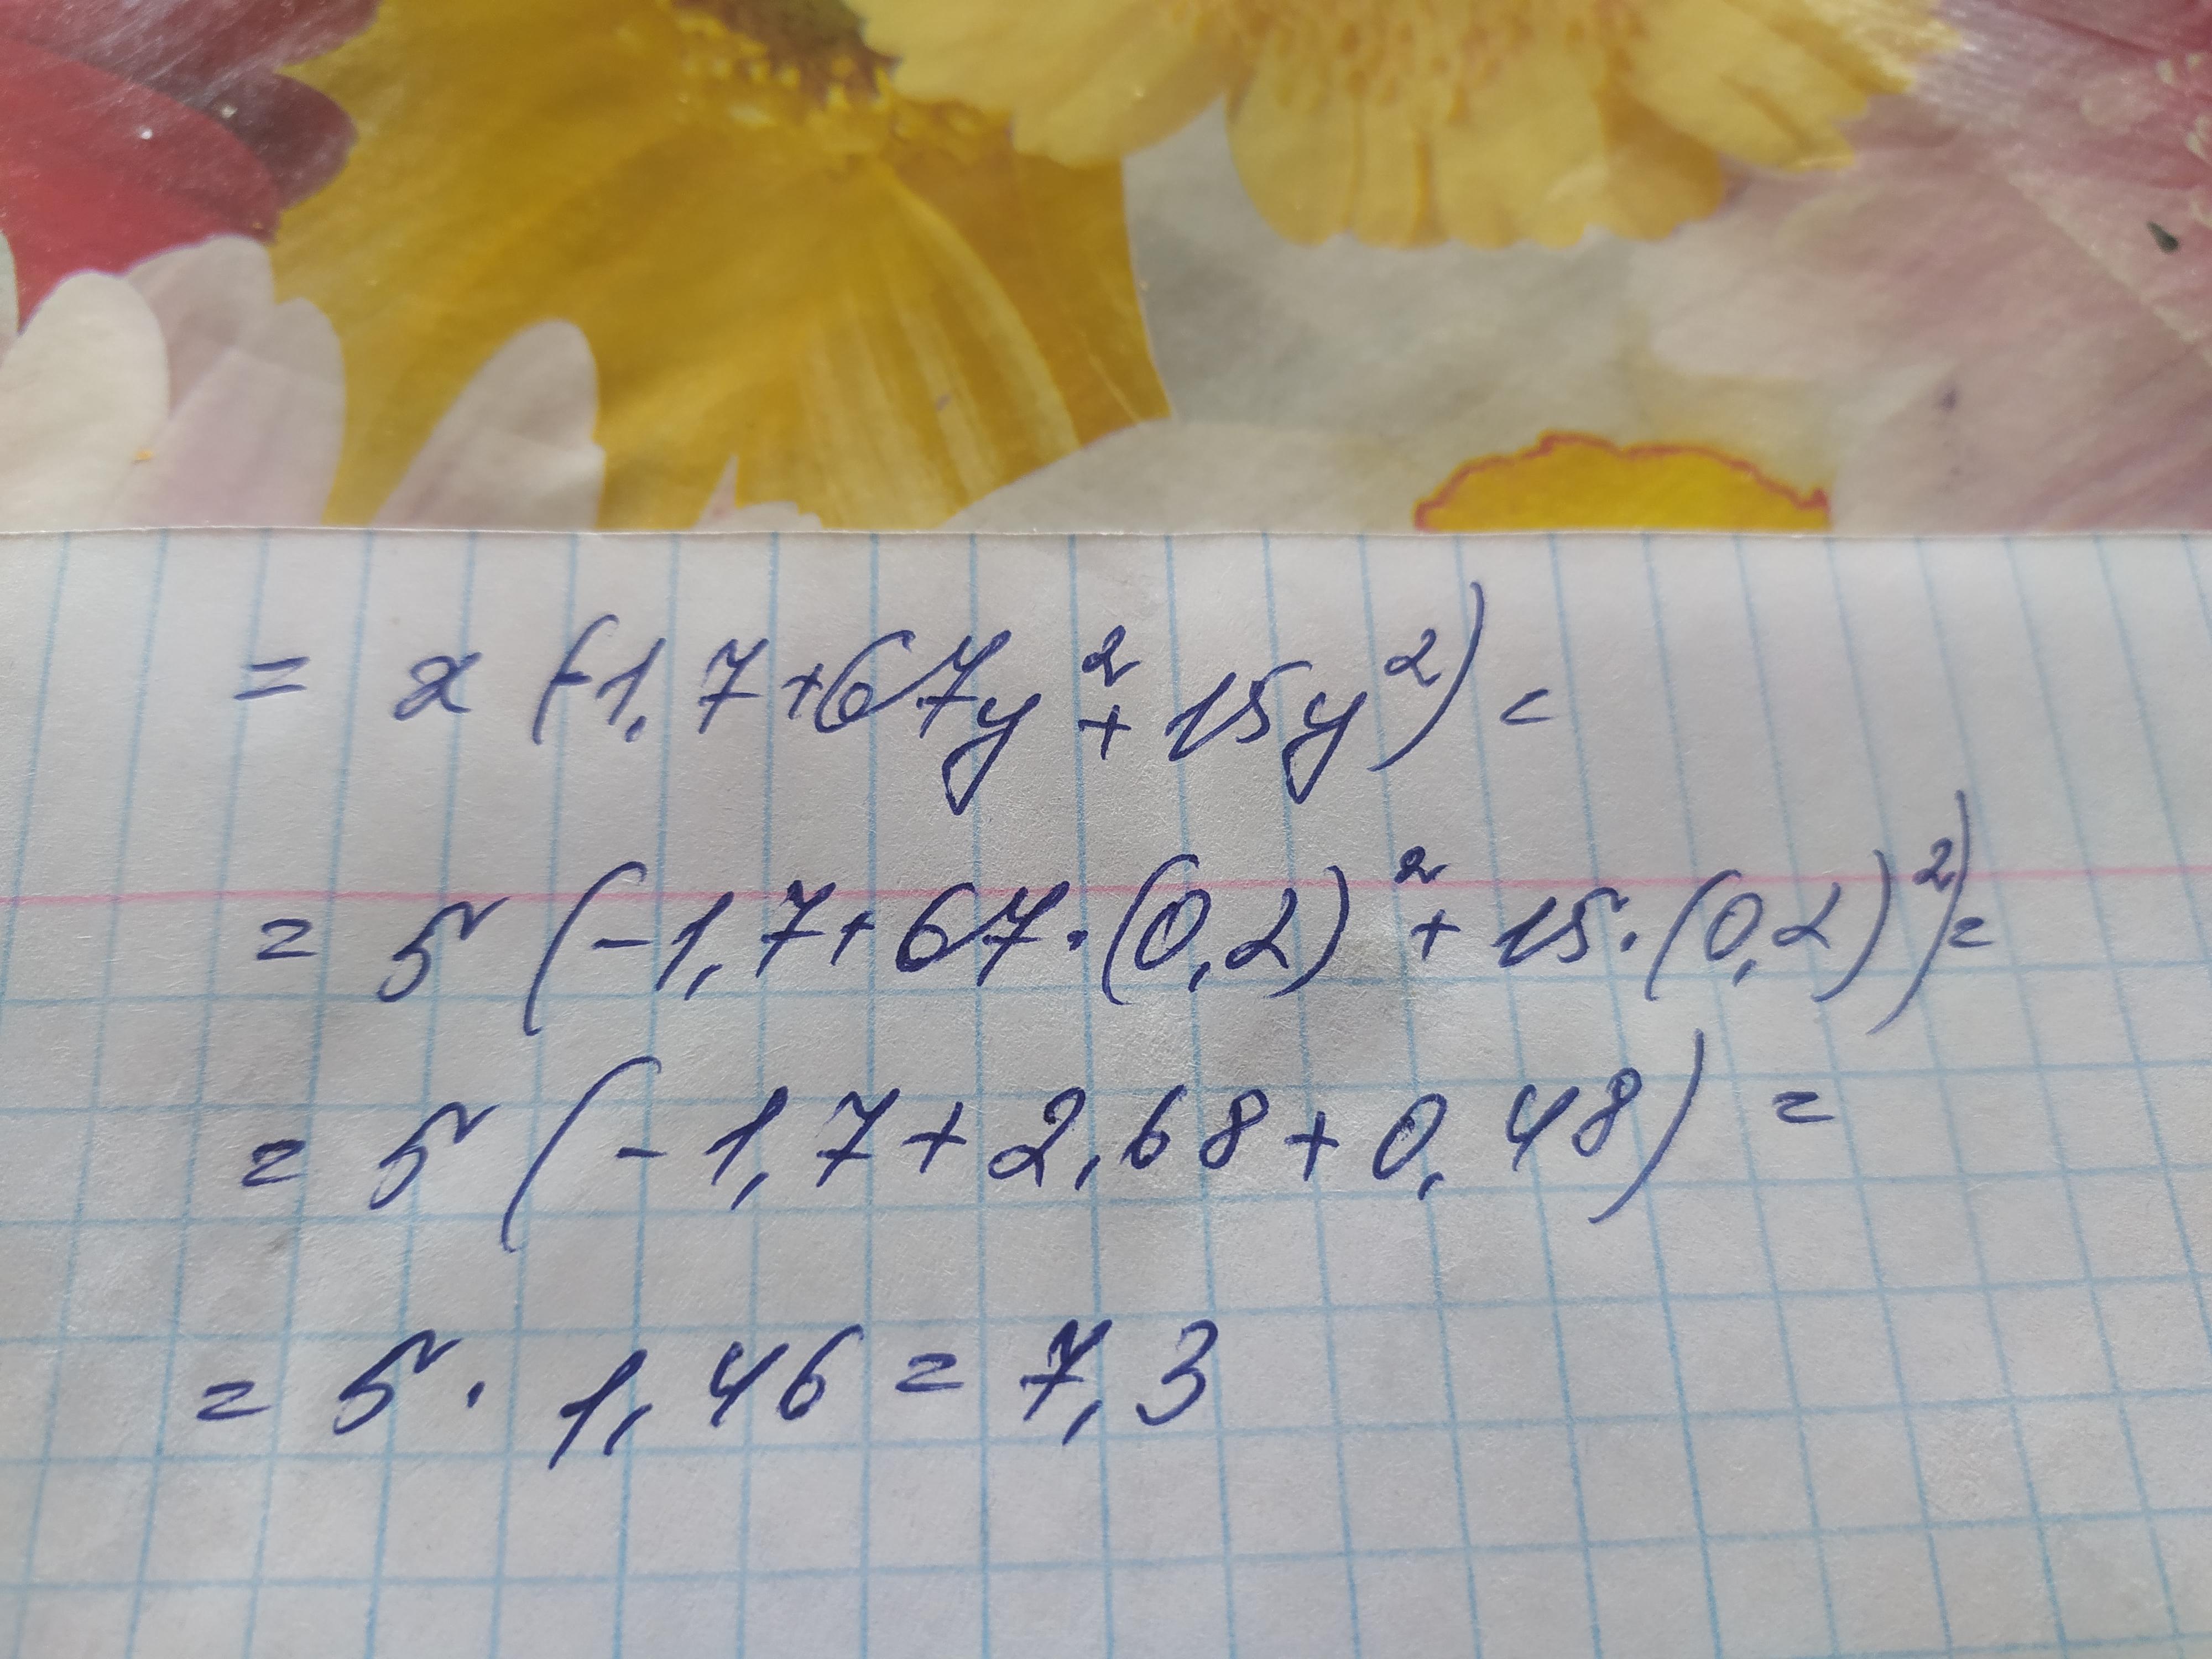 = x (-1,7+67y²+15y²) =
= 5 (-1,7+67·(0,2)²+15·(0,2)²)=
= 5 (-1,7+2,68+0,48) =
= 5 · 1,46 = 7,3